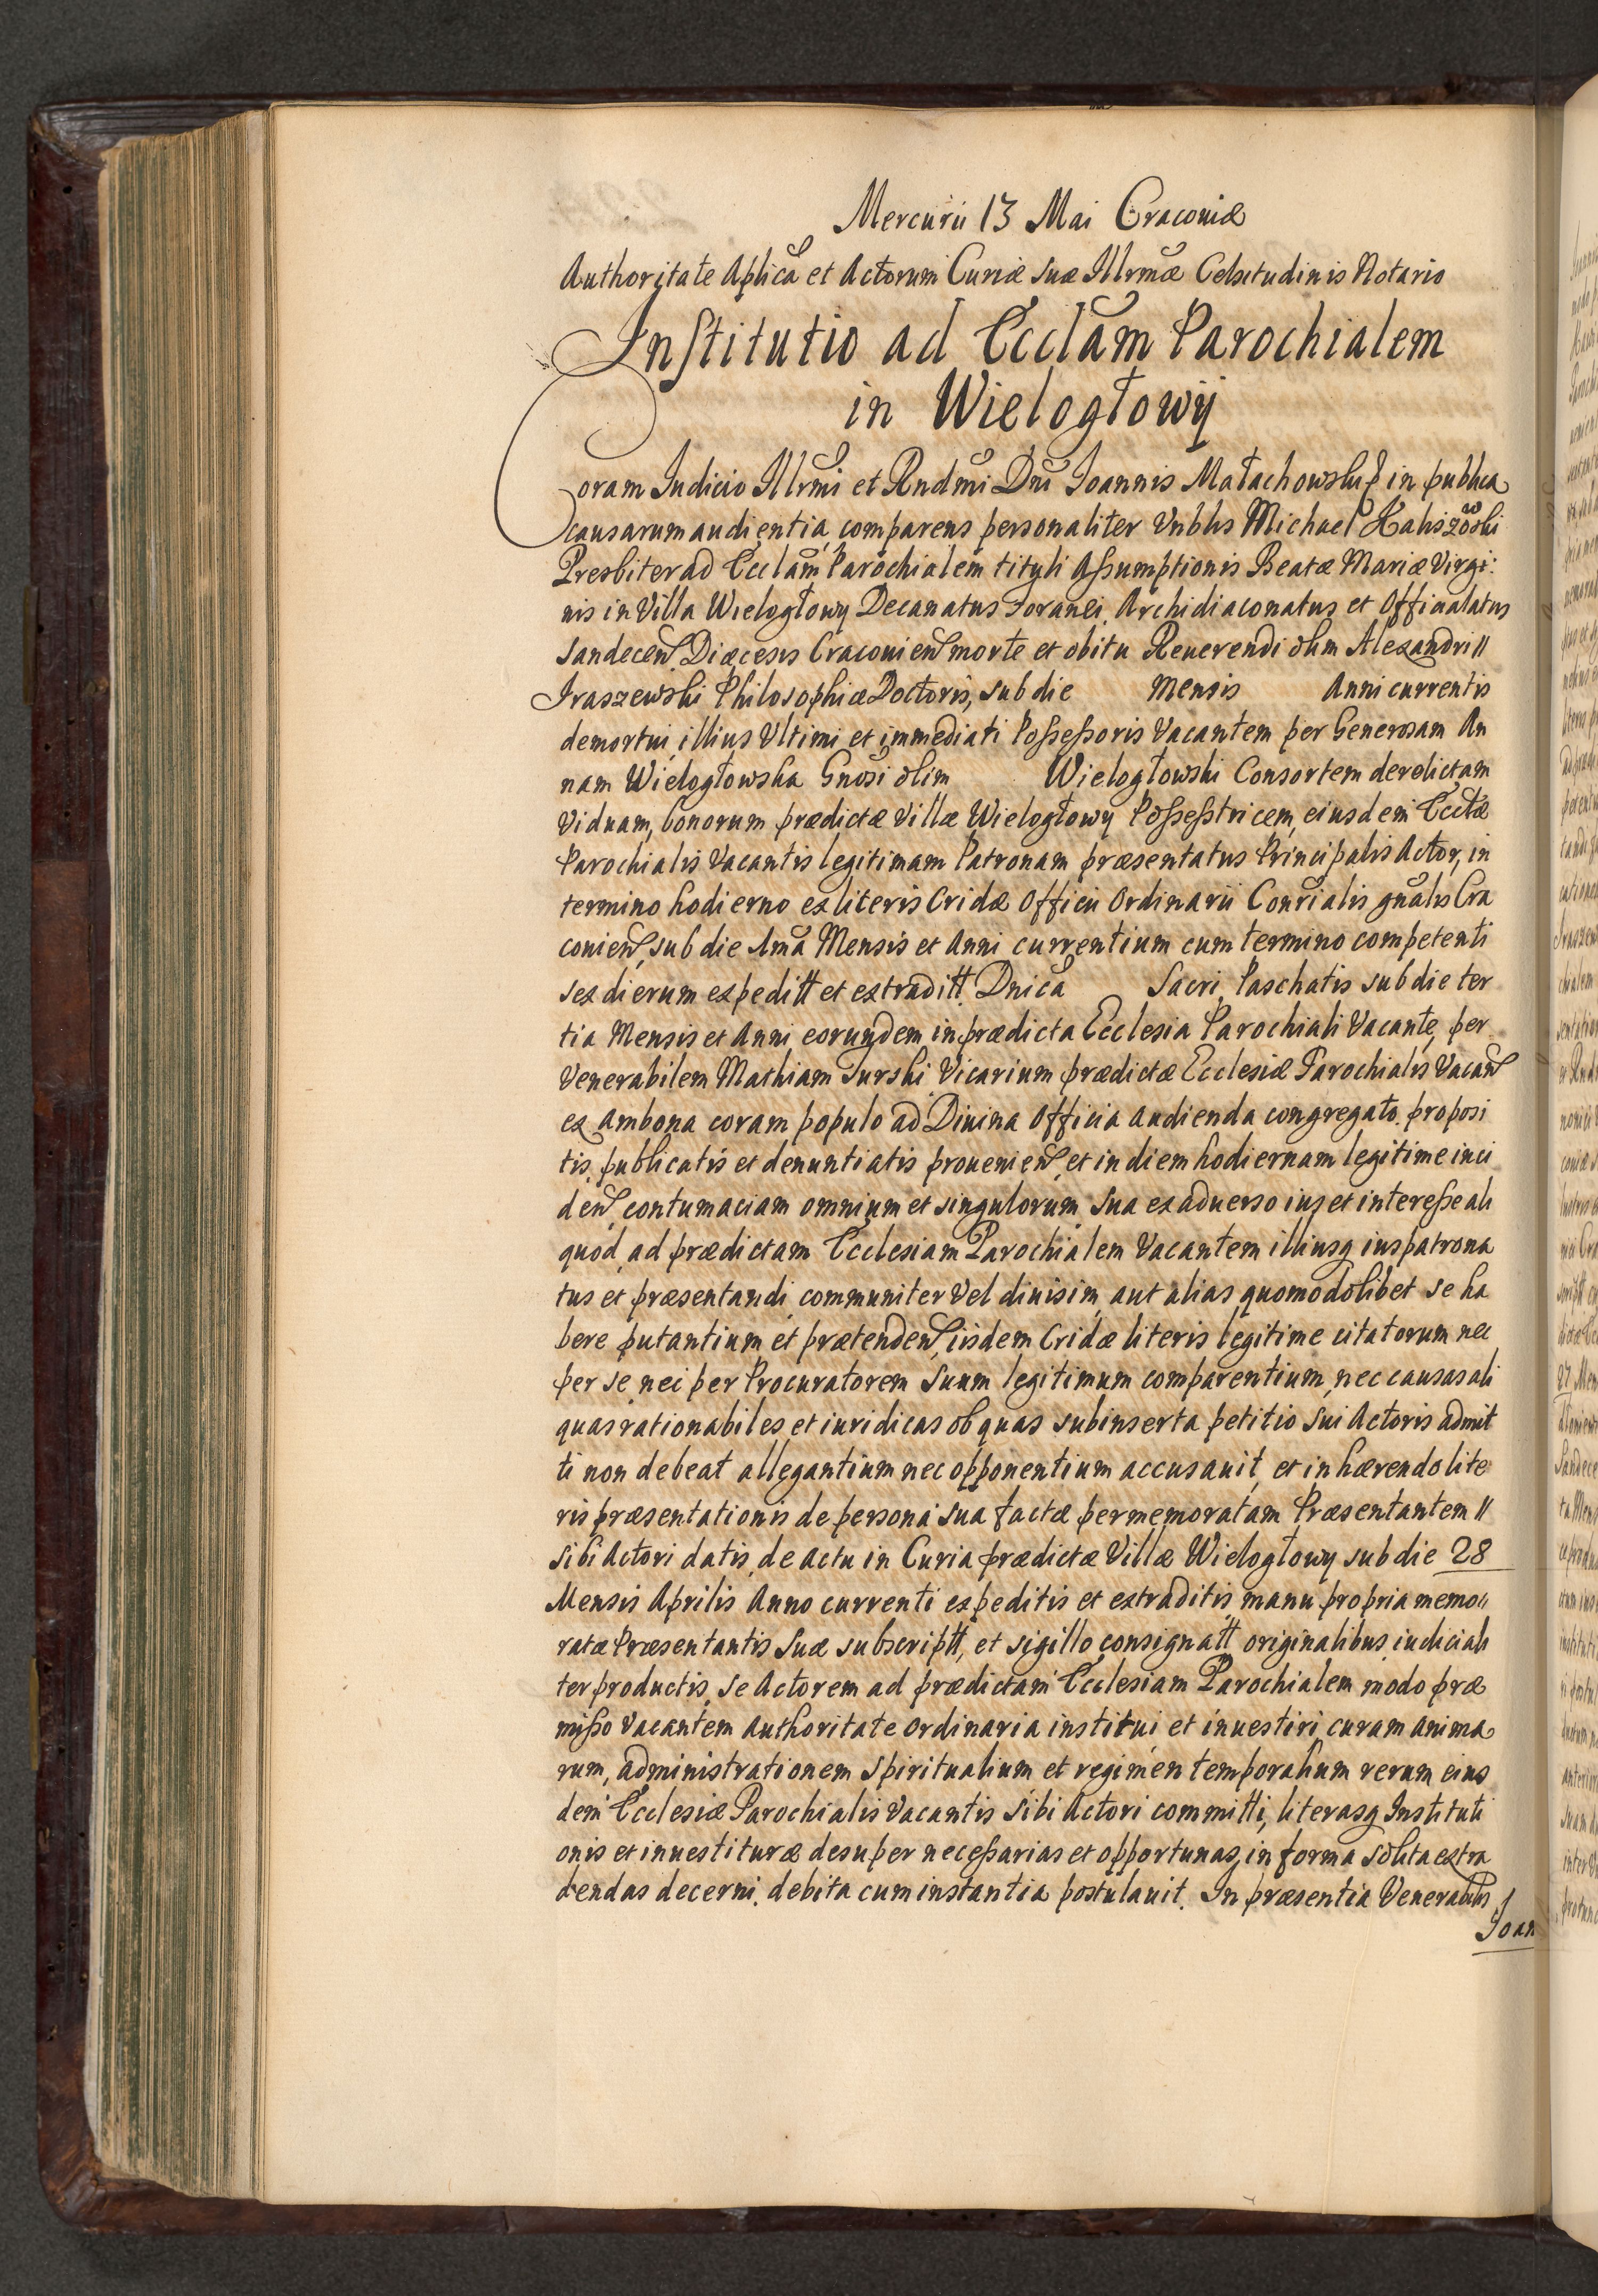 Mercurii 13 Mai Cracoviæ
Authoritate Aplicã et Actorum Curiæ suæ Illrmæ Celsitudinis Notario
Institutio ad Ecclãm Parochialem
in Wielogłowÿ
Coram Iudicio Illrmi et Rndmi Dni Ioannis Małachowski in publica
causarum audientia comparens personaliter Vnblis Michael Kaliszowski
Presbiter ad Ecclãm Parochialem tituli Assumptionis Beatæ Mariæ Virgi:
nis in Villa Wielogłowy Decanatus Foranei, Archidiaconatus et Officialatus
Sandecen Diæcesis Cracovien morte et obitu Reuerendi olim Alexandri //
Iraszewski Philosophiæ Doctoris, sub die mensis Anni currentis
demortui illius Vltimi et immediati Possessoris Vacantem per Generosam An
nam Wielogłowska Gnosi olim Wielogłowski Consortem derelictam
Viduam, bonorum prædictæ Villæ Wielogłowy Possesstricem, eiusdem Ecclæ
Parochialis Vacantis legitimam Patronam præsentatus Principalis Actor, in
termino hodierno ex literis Cridæ Officii Ordinarii Consialis gnãlis Cra
covien, sub die 1ma Mensis et Anni currentium cum termino competenti
sex dierum expeditt et extraditt Dnicã Sacri Paschatis sub die ter
tia Mensis et Anni eorundem in prædicta Ecclesia Parochiali Vacante, per
Venerabilem Mathiam Surski Vicarium prædictæ Ecclesiæ Parochialis Vacan
ex Ambona coram populo ad Diuina Officia audienda congregato proposi
tis publicatis et denuntiatis prouenien, et in diem hodiernam legitime inci
den, contumaciam omnium et singulorum sua ex aduerso ius et interesse ali
quod ad prædictam Ecclesiam Parochialem Vacantem illiusq ius patrona
tus et præsentandi communiter Vel diuisim aut alias quomodolibet se ha
bere putantium et prætenden, iisdem Cridæ literis legitime citatorum nec
per se nec per Procuratorem Suum legitimum comparentium, nec causas ali
quas rationabiles et iuridicas ob quas subinserta petitio sui Actoris admit
ti non debeat allegantium nec opponentium accusauit, et in hærendo lite
ris præsentationis de persona sua factæ per memoratam Præsentantem //
sibi Actori datis, de actu in Curia prædictæ Villæ Wielogłowy sub die 28
Mensis Aprilis Anno currenti expeditis et extraditis manu propria memo//
ratæ Præsentantis Suæ subscriptt, et sigillo consignatt originalibus iudiciali
ter productis, se Actorem ad prædictam Ecclesiam Parochialem modo præ
misso Vacantem Authoritate ordinaria institui et inuestiri curam anima
rum, administrationem Spiritualium et regimen temporalium rerum eius
dem Ecclesiæ Parochialis Vacantis Sibi Actori committi, literasq Instituti
onis et inuestituræ desuper necessarias et opportunas, in forma solita extra
dendas decerni debita cum instantia postulauit. In præsentia Venerabilis
Ioan